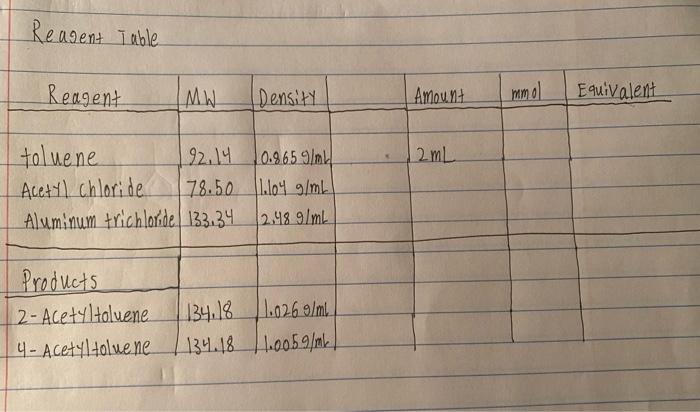 Reagent Table
Reagent MW Density Amount mmol Equivalent
toluene 92.14 0.865 g/mL 2mL
Acetyl chloride 78.50 1.104 g/mL
Aluminum trichloride 133.34 2.48 g/mL
Products
2-Acetyltoluene 134.18 1.026 g/mL
4-Acetyltoluene 134.18 1.005g/mL